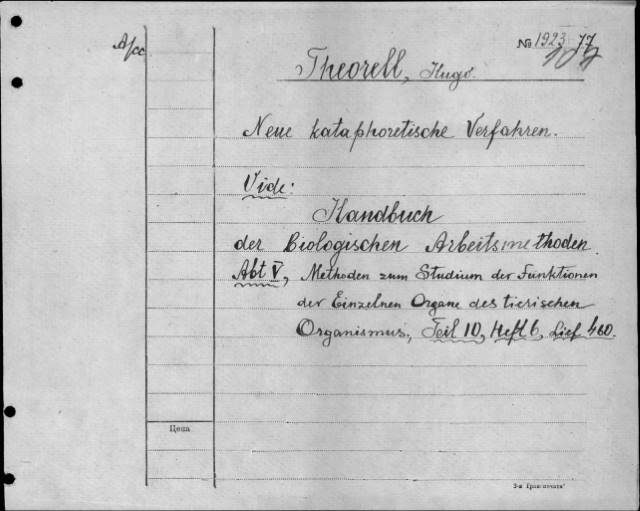 Асс
№ 1923 77
Theorell, Hugo.
Neue kataphoretische Verfahren.
Vide:
Handbuch
der Biologischen Arbeitsmethoden
Abt V, Methoden zum Studium der Funktionen
der Einzelnen Organe des tierischen
Organismus, Teil 10, Heft 6, Lief 460.
Цена